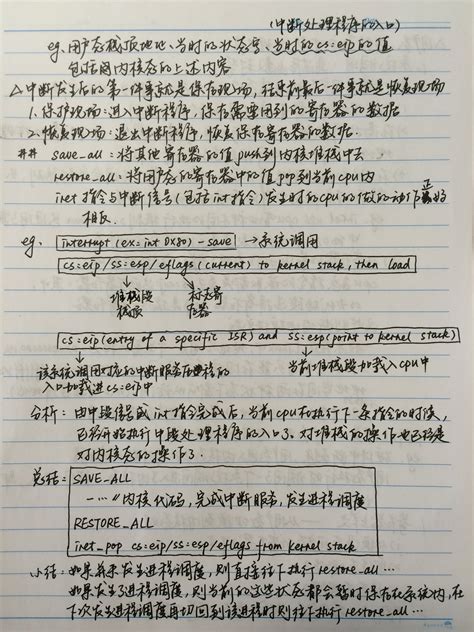 (中断处理程序的入口)
eg. 用户态栈顶地址、当时的状态字、当时的cs:eip的值
包括内核态的上述内容
△中断发生后的第一件事就是保存现场,结束前最后一件事就是恢复现场
1.保护现场:进入中断程序,保存需要用到的寄存器的数据
2.恢复现场:退出中断程序,恢复保存寄存器的数据.
## save_all:将其他寄存器的值push到内核堆栈中去
restore_all:将用户态的寄存器中的值pop到当前cpu内
iret指令与中断信号(包括int指令)发生时的cpu的做的动作正好
相反.
eg. interrupt (ex: int 0x80) - save →系统调用
cs:eip/ss:esp/eflags (current) to kernel stack, then load
堆栈段 标志寄
栈顶 存器
cs:eip (entry of a specific ISR) and ss:esp (point to kernel stack)
该系统调用对应的中断服务程序的 当前堆栈段加载入cpu中
入口加载进cs:eip中
分析:由中断信号或int指令完成后,当前cpu在执行下一条指令的时候,
已经开始执行中断处理程序的入口了.对堆栈的操作也已经是
对内核态的操作了.
总结: SAVE_ALL
-…〃内核代码,完成中断服务,发生进程调度
RESTORE_ALL
iret_pop cs:eip/ss:esp/eflags from kernel stack
小结:如果若未发生进程调度,则直接往下执行restore_all …
如果发生了进程调度,则当前的这些状态都会暂时保存在系统内,在
下次发生进程调度再切回到该进程时则往下执行restore_all …